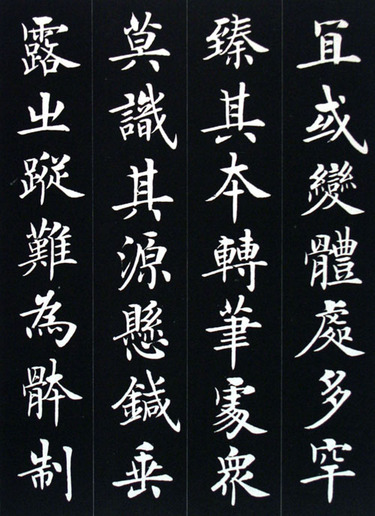 冝或變體處多罕
臻其本轉筆處衆
莫識其源懸鍼垂
露之蹤難為骵制